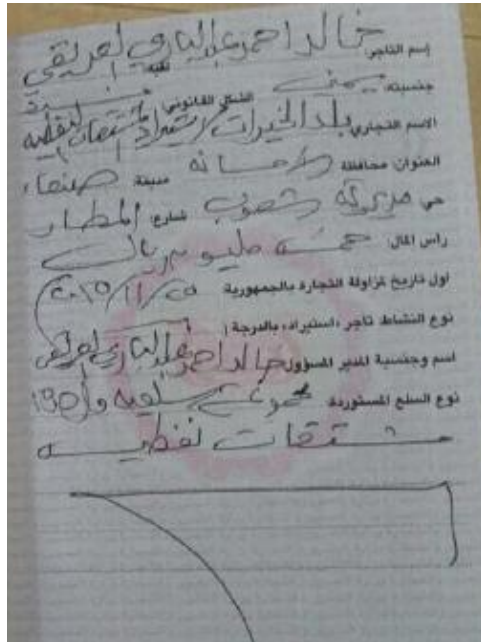 إسم التاجر: خالد احمد عبد الباري العريقي
جنسيته: يمني الشكل القانوني
الاسم التجاري: بلد الخيرات لاستيراد المشتقات النفطية
العنوان محافظة الامانه مدينة صنعاء
حي مديرية شعوب شارع: المطار
رأس المال: خمسه مليون ريال
اول تاريخ لمزاولة التجارة بالجمهورية ٢٠١٥/١١/٢٥
نوع النشاط تاجر، استيراد، بالدرجة ١
اسم وجنسية المدير المسؤول خالد احمد عبد الباري العريقي
نوع السلع المستوردة مجموعة سلعيه
مشتقات نفطيه